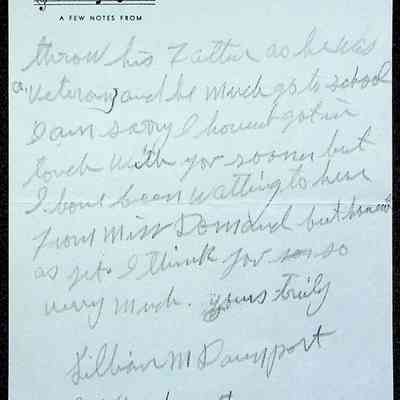 A FEW NOTES FROM
throw his Father as he was
a Veteran, and he much go to school
I am sorry I havent got in
touch with you sooner but
I have been watting to hear
from Miss Domand but havent
as yet. I think you so
verry much. yours truly
Lillian M Davenport